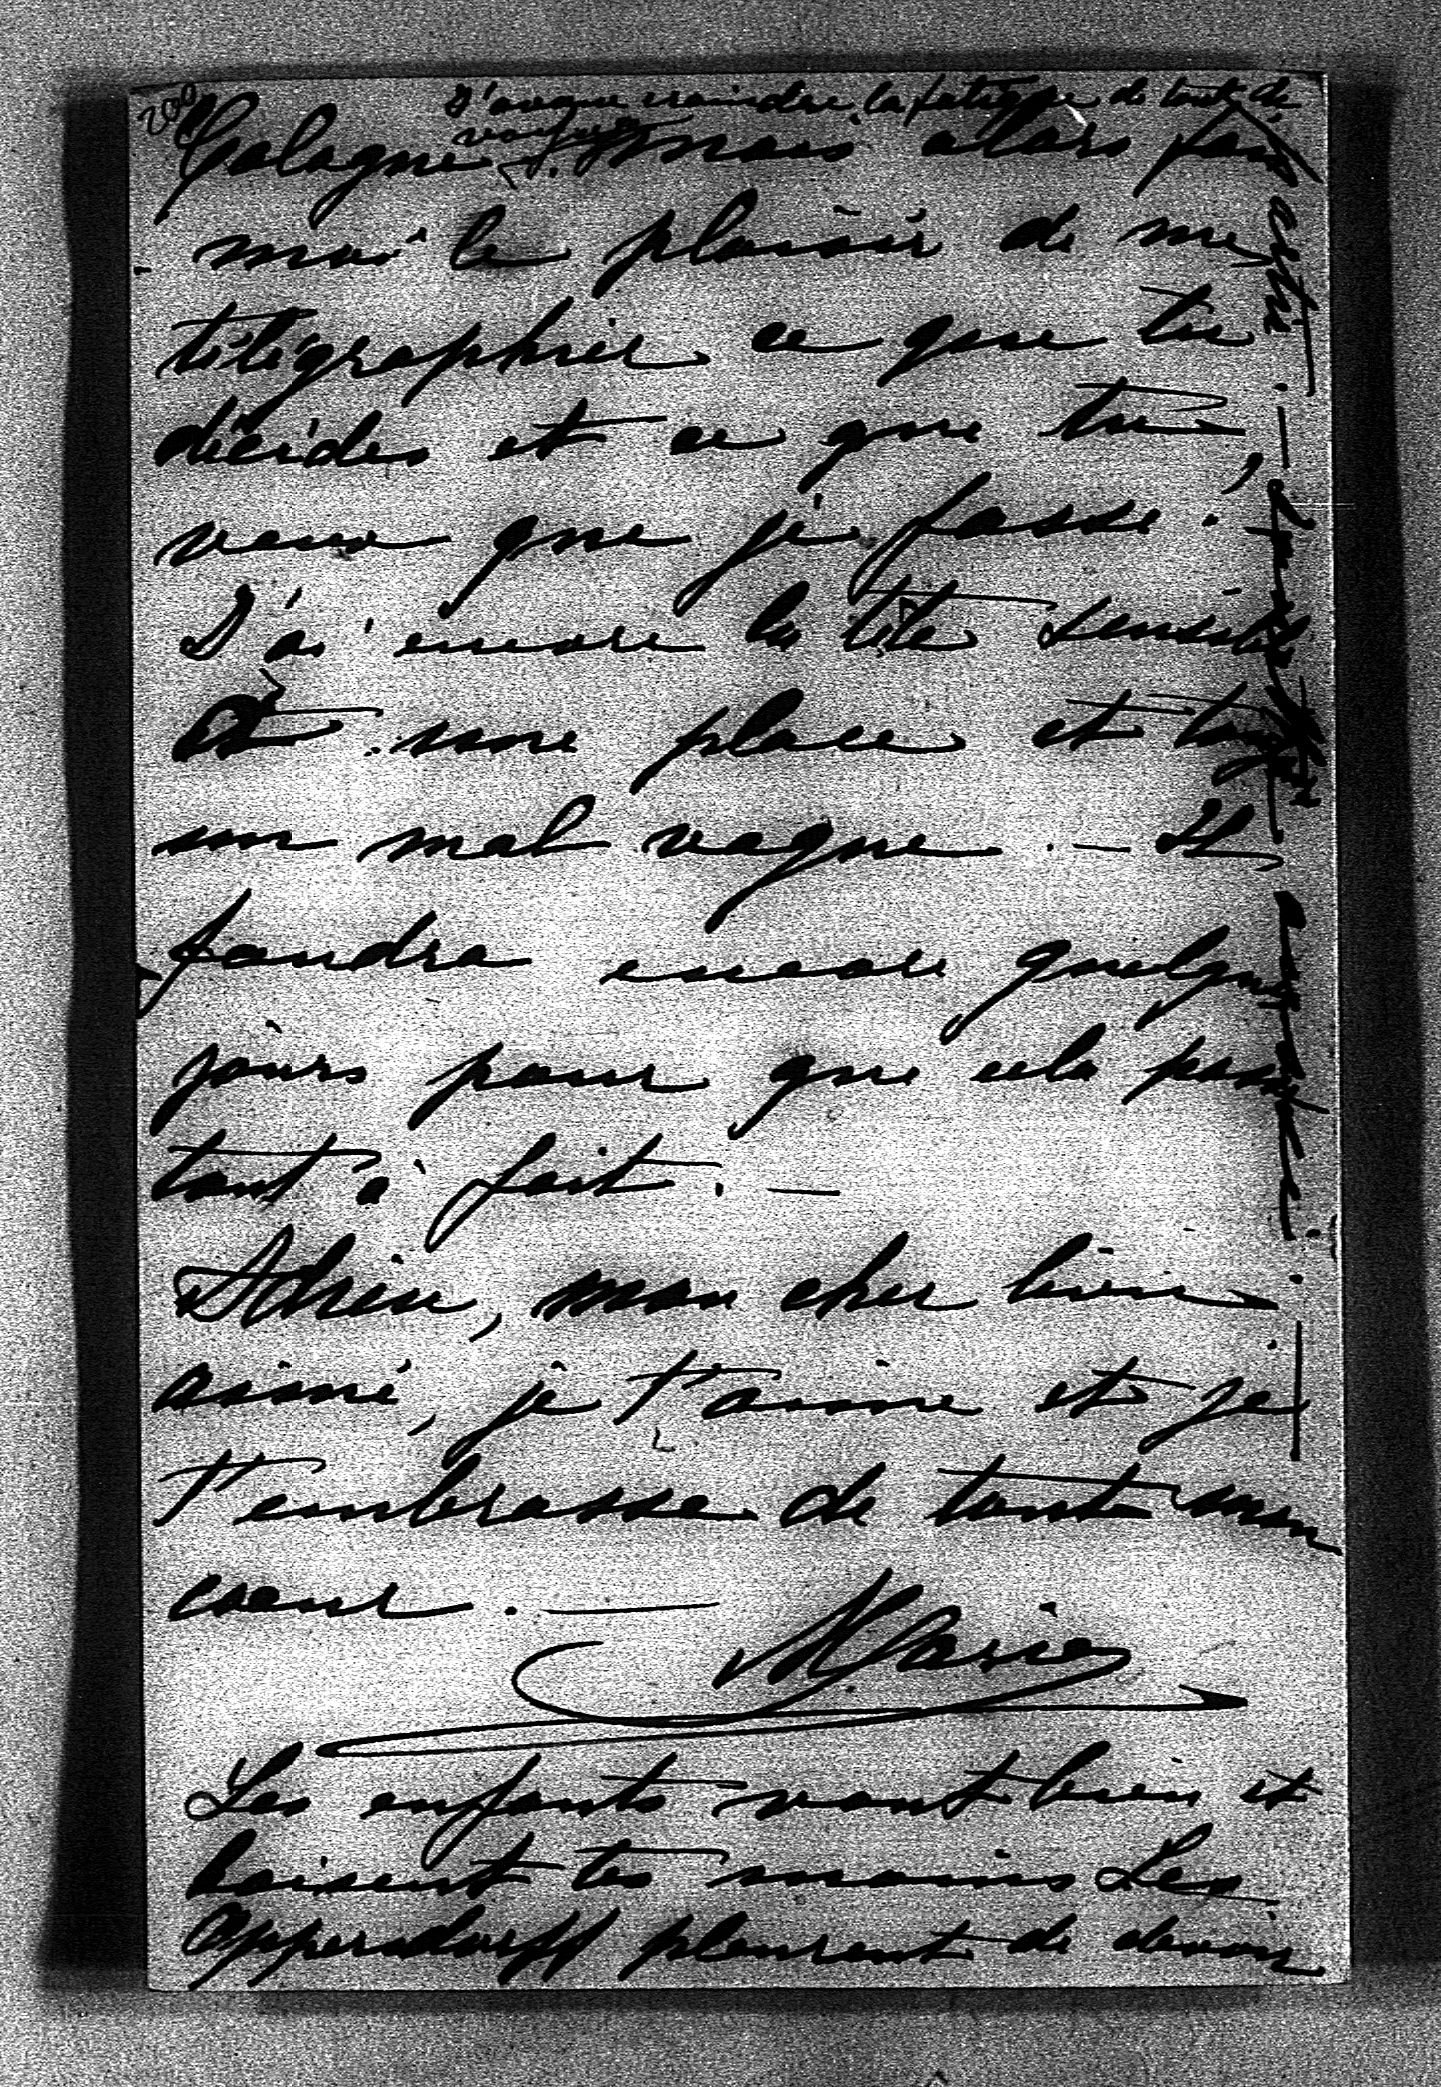 200
J'avoue craindre la fatigue de tant de
voyages
Cologne, mais alors fais
moi le plaisir de me
télégraphier ce que tu
décides et ce que tu
veux que je fasse.
J'ai encore la tête sensible
à une place et toujours
un mal vague. — Il
faudra encore quelques
jours pour que cela passe
tout à fait. —
Adrien, mon cher bien
aimé, je t'aime et je
t'embrasse de tout mon
coeur. — Marie
Les enfants vont bien et
baisent tes mains Les
Oppersdorff pleurent de devoir